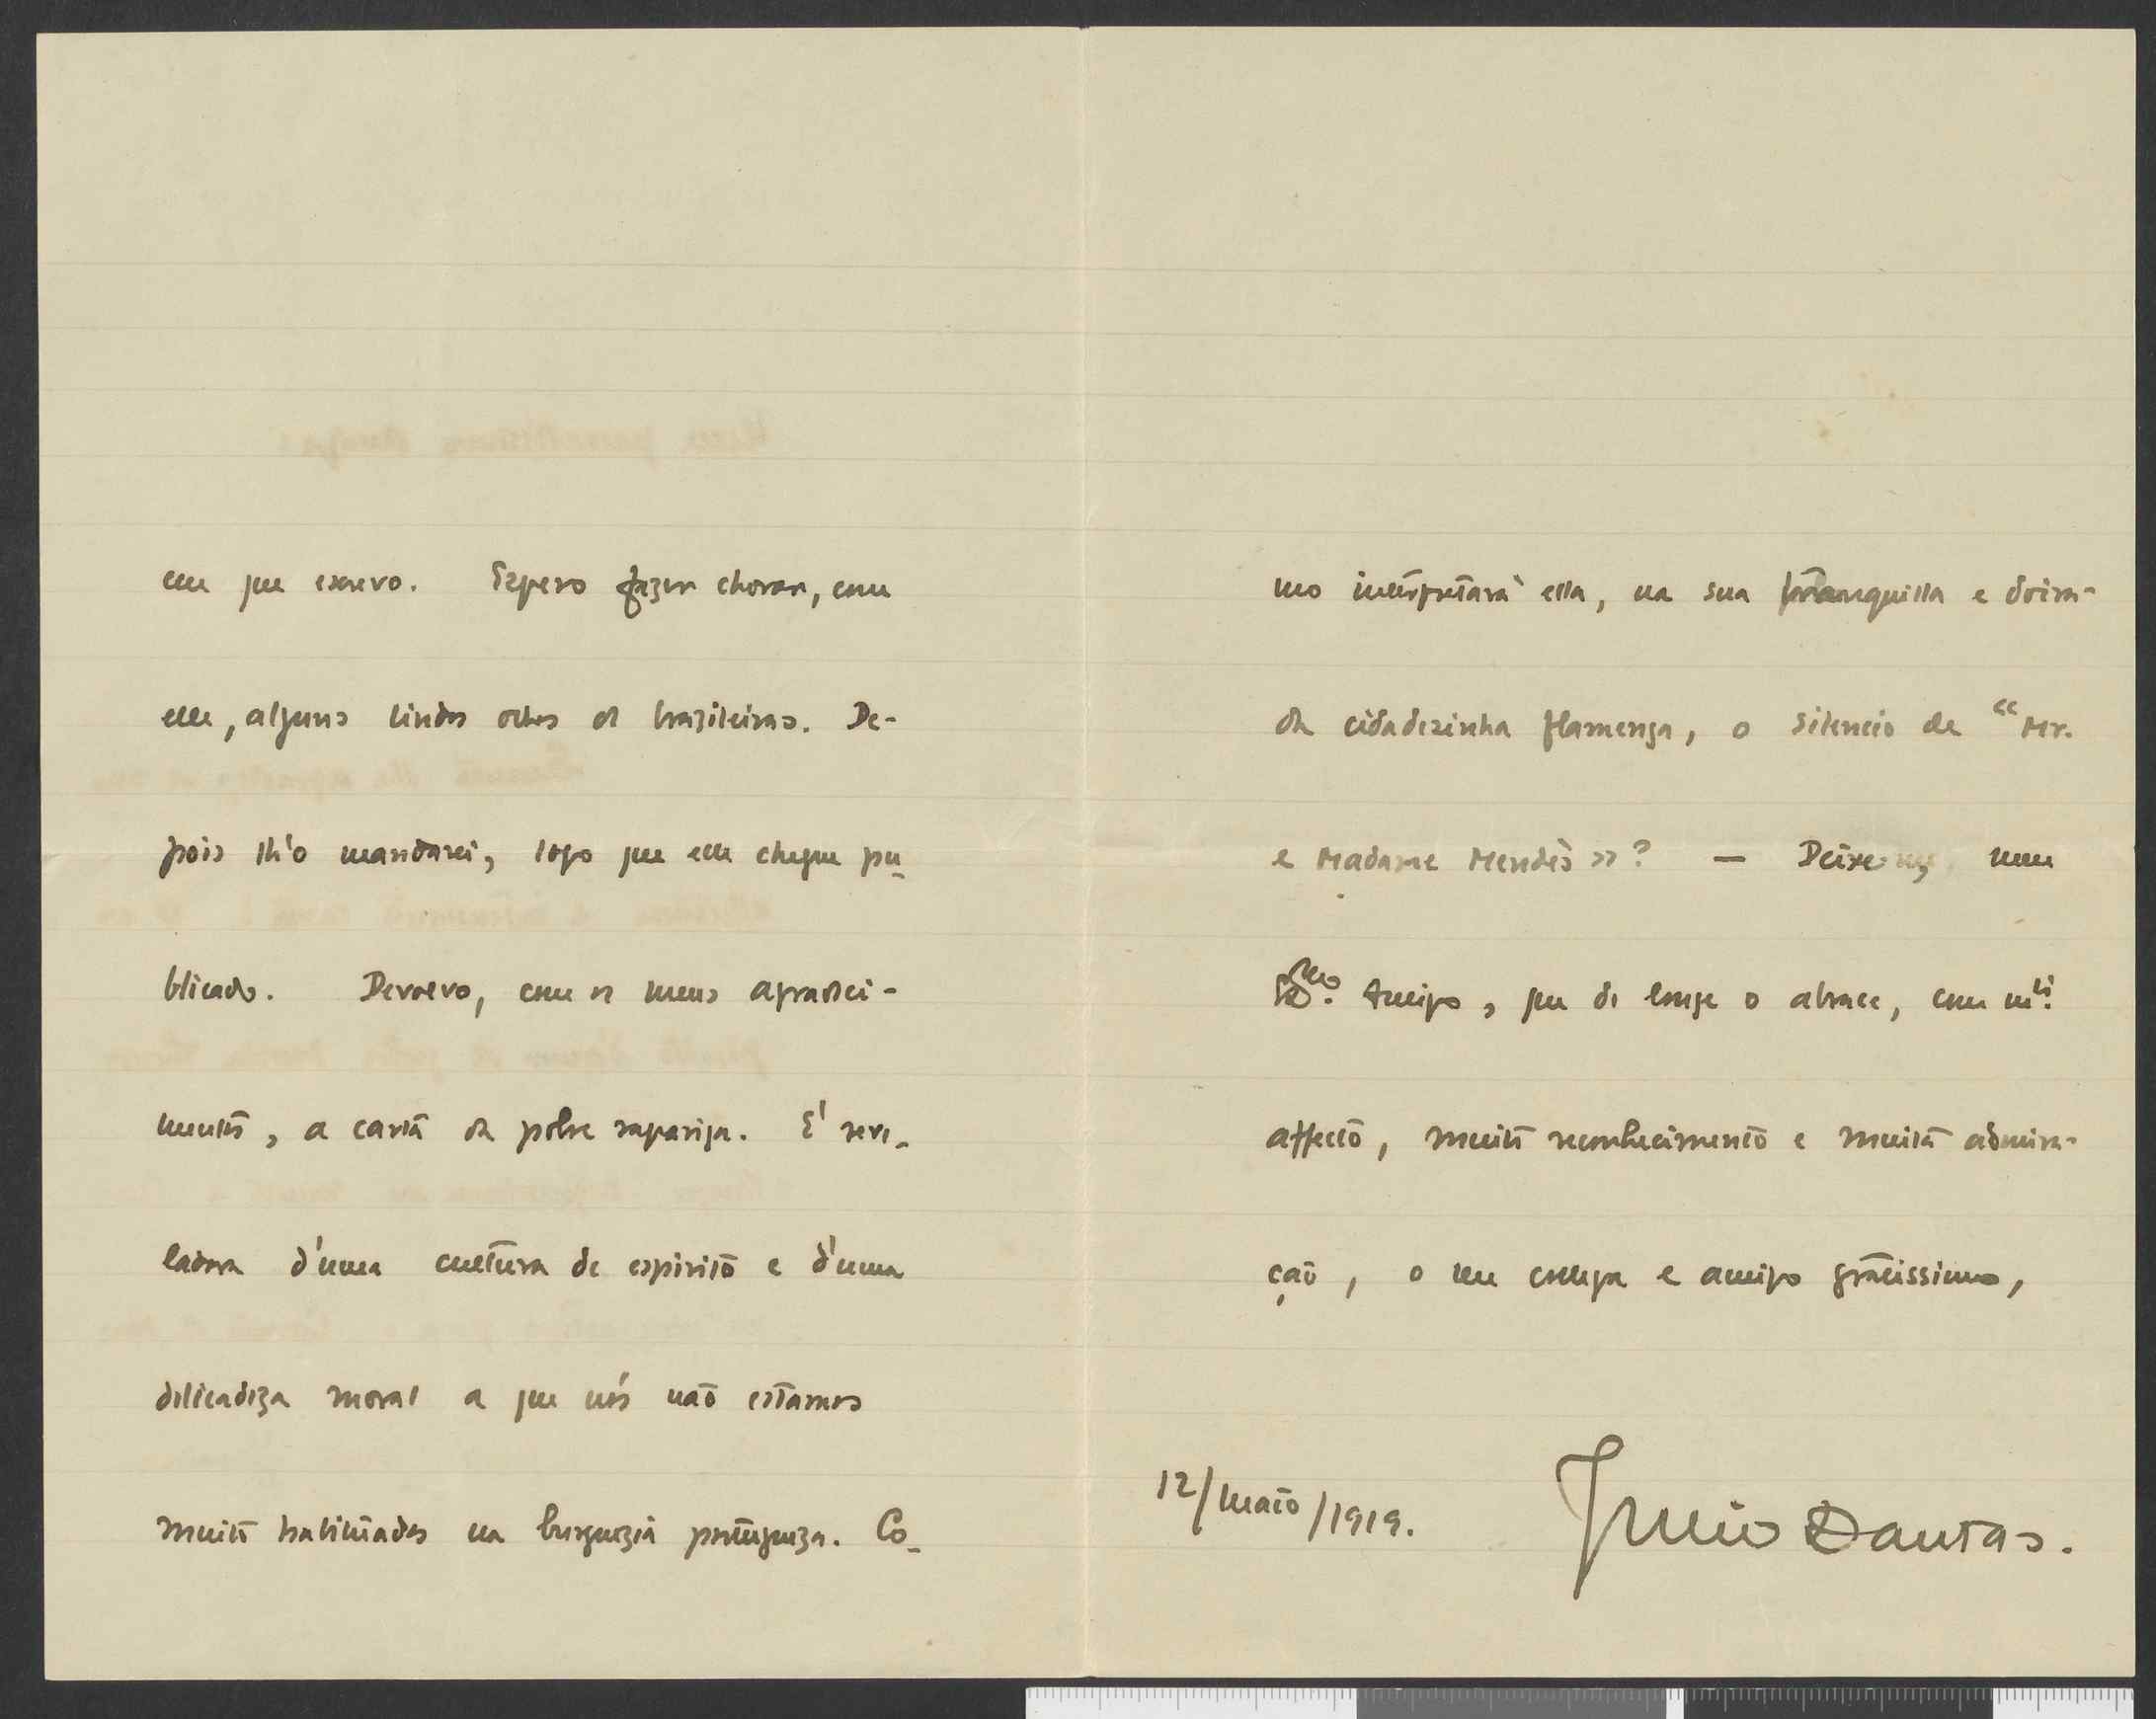 em que escrevo. Espero fazer chorar, com
elle, alguns lindos olhos de brazileiras. De-
pois lh'o mandarei, logo que elle chegue pu-
blicado. Devolvo, com os meus agradeci-
mentos, a carta da pobre rapariga. E' reve-
ladora d'uma cultura de espirito e d'uma
delicadeza moral a que nós não estamos
muito habituados na burguezia portugueza. Co-
mo interpretará ella, na sua tranquilla e doira-
da cidadezinha flamenga, o silencio de "Mr.
e Madame Mendès"? — Deixe, meu
Amigo, que de longe o abrace, com mto.
affecto, muito reconhecimento e muita admira-
ção, o seu collega e amigo gratissimo,
12/maio/1919. Julio Dantas.